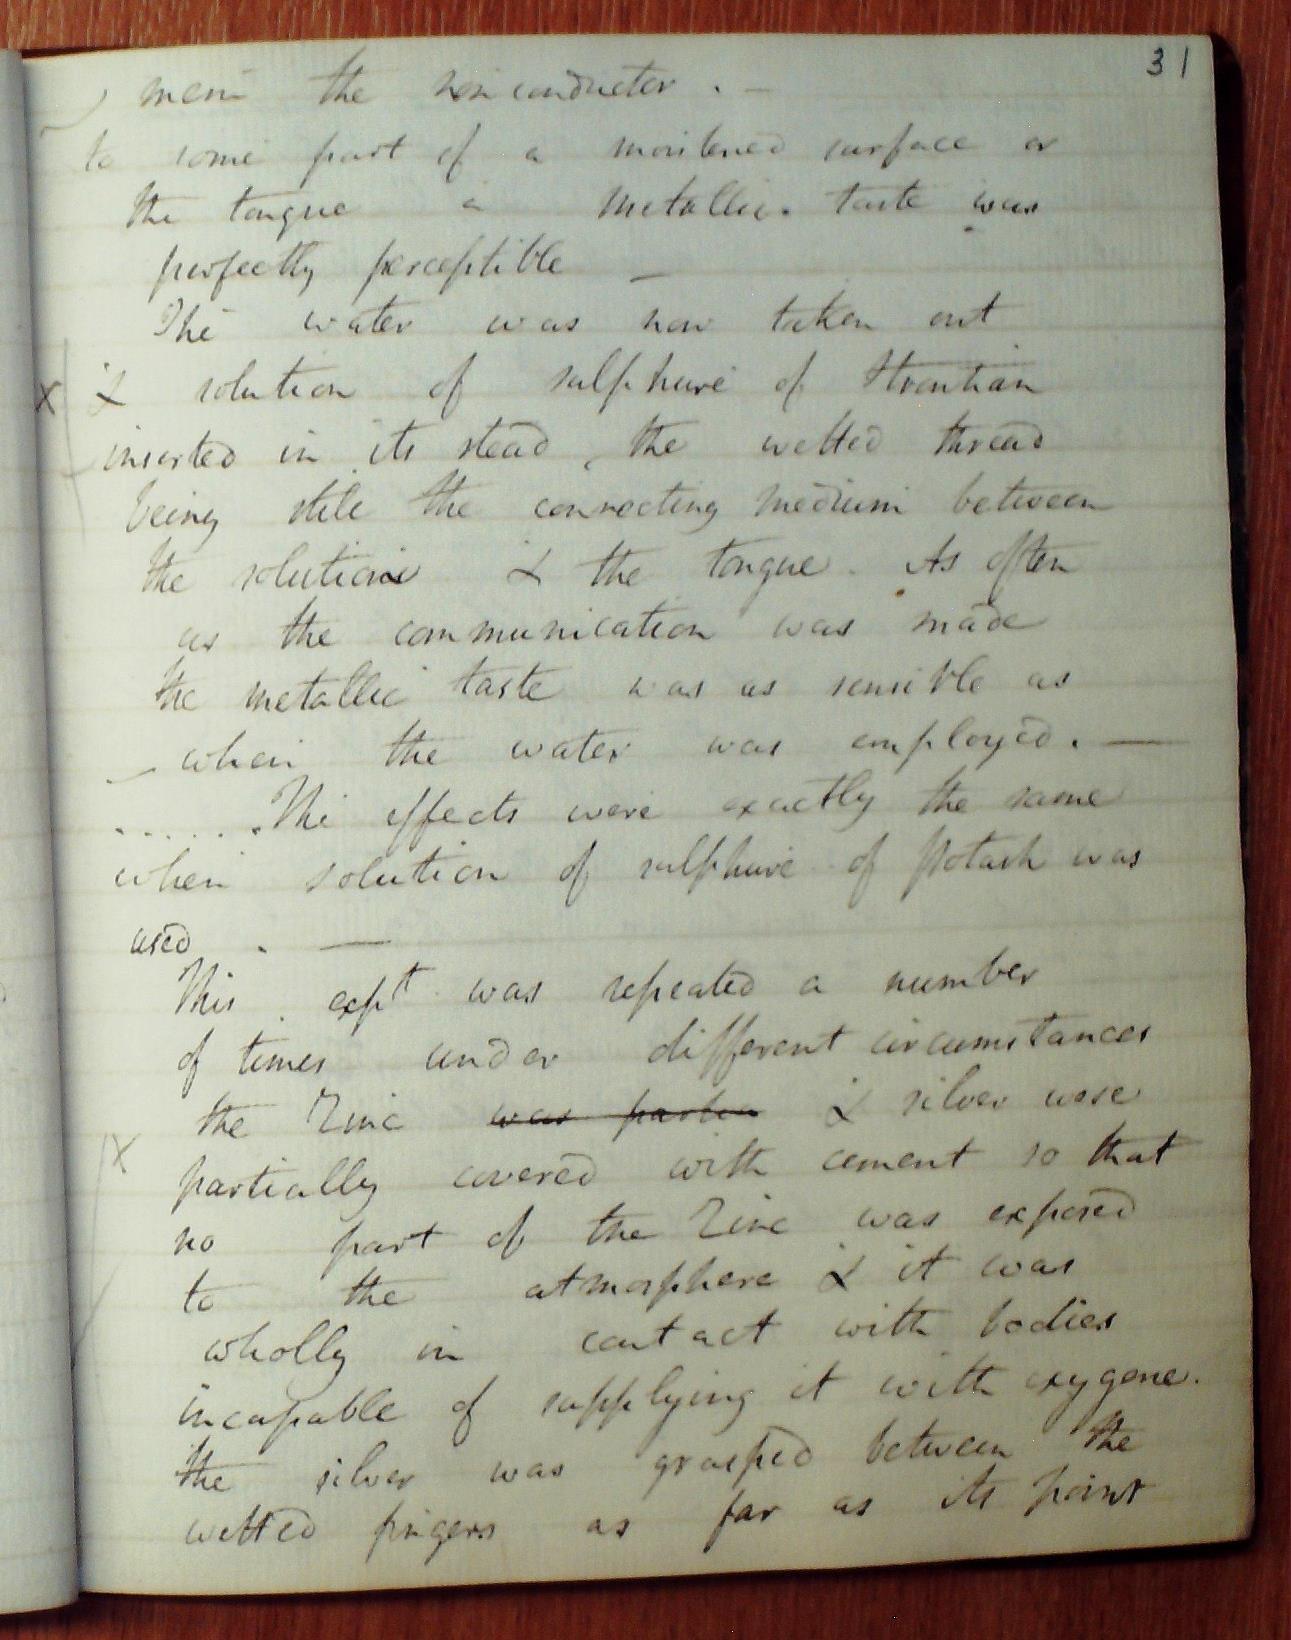 31
the nonconductor . —
to some part of a moistened surface or
the tongue a metallic. taste was
perfectly perceptible —
The water was now taken out
x & solution of sulphure of Strontian
inserted in its stead, the wetted thread
being stile the connecting medium between
the solution & the tongue. As often
as the communication was made
the metallic taste was as sensible as
when the water was employed. —
.......The effects were exactly the same
when solution of sulphure of Potash was
used . —
This expt was repeated a number
of times under different circumstances
the Zinc was partia & silver were
x partially covered with cement so that
no part of the Zinc was exposed
to the atmosphere & it was
wholly in contact with bodies
incapable of supplying it with oxygene.
the silver was grasped between the
wetted fingers as far as its point